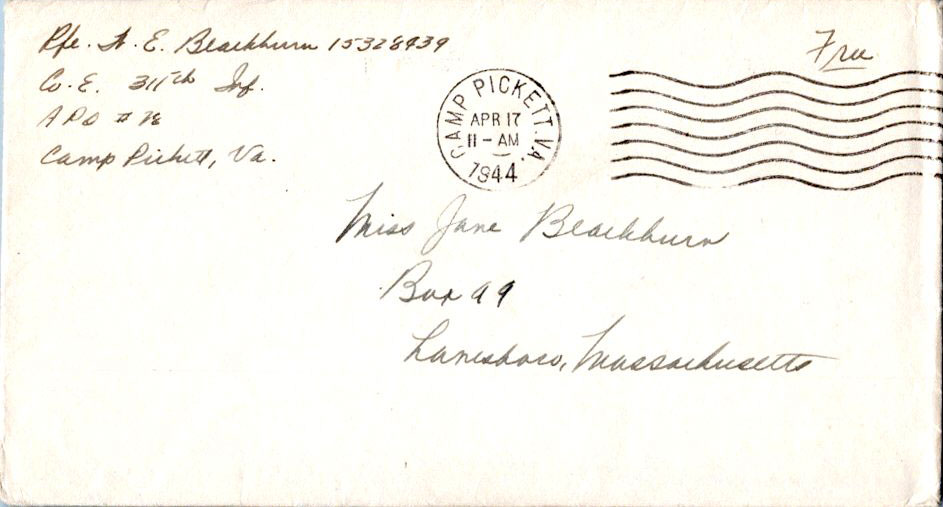 Pfc. W. E. Blackburn 15328939
Co. E. 311th Inf.
APO # 78
Camp Pickett, Va.
Free
CAMP PICKETT. VA.
APR 17
11 - AM
1944
Miss Jane Blackburn
Box 99
Lanesboro, Massachusetts